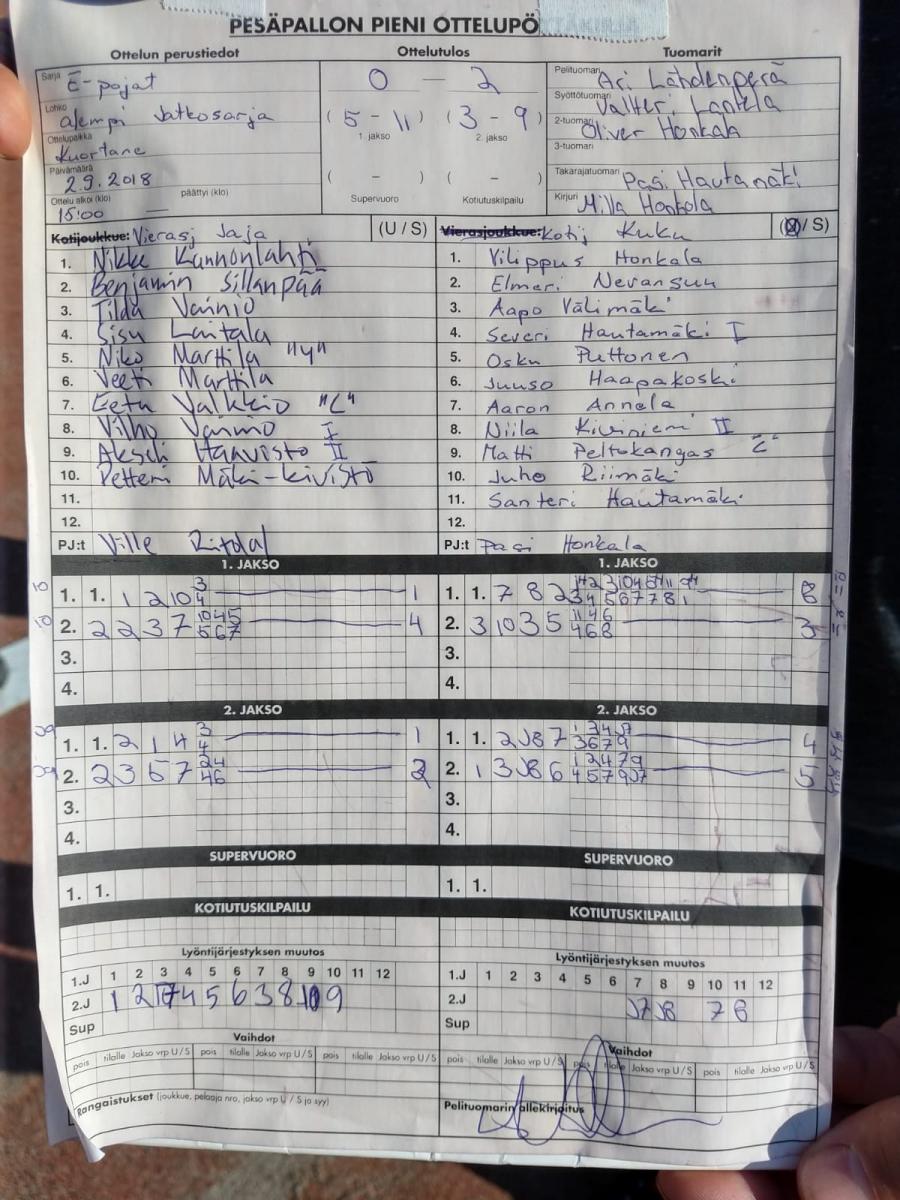 PESÄPALLON PIENI OTTELUPÖ
Ottelun perustiedot
Ottelutulos
Tuomarit
Sarja E-pojat
Lohko alempi Jatkosarja
Ottelupaikka Kuortane
Päivämäärä 2.9.2018
päättyi (klo) —
Ottelu alkoi (klo) 15:00
0 – 2
( 5 - 11 ) ( 3 - 9 )
1. jakso 2. jakso
( - ) ( - )
Supervuoro Kotiutuskilpailu
Pelituomari Ari Lähdenperä
Syöttötuomari Valteri Lantela
2-tuomari Oliver Honkala
3-tuomari
Takarajatuomari Pasi Hautamäki
Kirjuri Milla Honkola
Kotijoukkue: Vierasj Jaja (U / S)
1. Nikke Kunnonlahti
2. Benjamin Sillanpää
3. Tilda Vainio
4. Sisu Laitala
5. Niko Marttila "y"
6. Veeti Marttila
7. Eetu Valkkio "L"
8. Vilho Vainio I
9. Akseli Haavisto II
10. Petteri Mäki-kivistö
11.
12.
PJ:t Ville
Vierasjoukkue: Kotij Kuku (U / S)
1. Vilippus Honkala
2. Elmeri Nevansuu
3. Aapo Välimäki
4. Severi Hautamäki I
5. Osku Puttonen
6. Juuso Haapakoski
7. Aaron Annala
8. Niila Kiviniemi II
9. Matti Peltokangas
10. Juho Riimäki
11. Santeri Hautamäki
12.
PJ:t Pasi Honkala
1. JAKSO
1. 1. 1 2 10 3 4 1
2. 2 2 3 7 10 4 5 5 6 7 4
3.
4.
1. JAKSO
1. 1. 7 8 2 8
2. 3 10 3 5 11 4 6 4 6 8 3
3.
4.
2. JAKSO
1. 1. 2 1 4 3 4 1
2. 2 3 6 7 2 4 4 6 2
3.
4.
2. JAKSO
1. 1. 2 J8 7 4
2. 1 3 J8 6 5
3.
4.
SUPERVUORO
1. 1.
SUPERVUORO
1. 1.
KOTIUTUSKILPAILU
KOTIUTUSKILPAILU
Lyöntijärjestyksen muutos
1.J 1 2 3 4 5 6 7 8 9 10 11 12
2.J 1 2 4 5 6 3 8 10 9
Sup
Lyöntijärjestyksen muutos
1.J 1 2 3 4 5 6 7 8 9 10 11 12
2.J J7 J8 7 8
Sup
Vaihdot
pois tilalle Jakso vrp U / S pois tilalle Jakso vrp U / S pois tilalle Jakso vrp U / S
Vaihdot
pois tilalle Jakso vrp U / S pois tilalle Jakso vrp U / S pois tilalle Jakso vrp U / S
Rangaistukset (joukkue, pelaaja nro, jakso vrp U / S ja syy)
Pelituomarin allekirjoitus